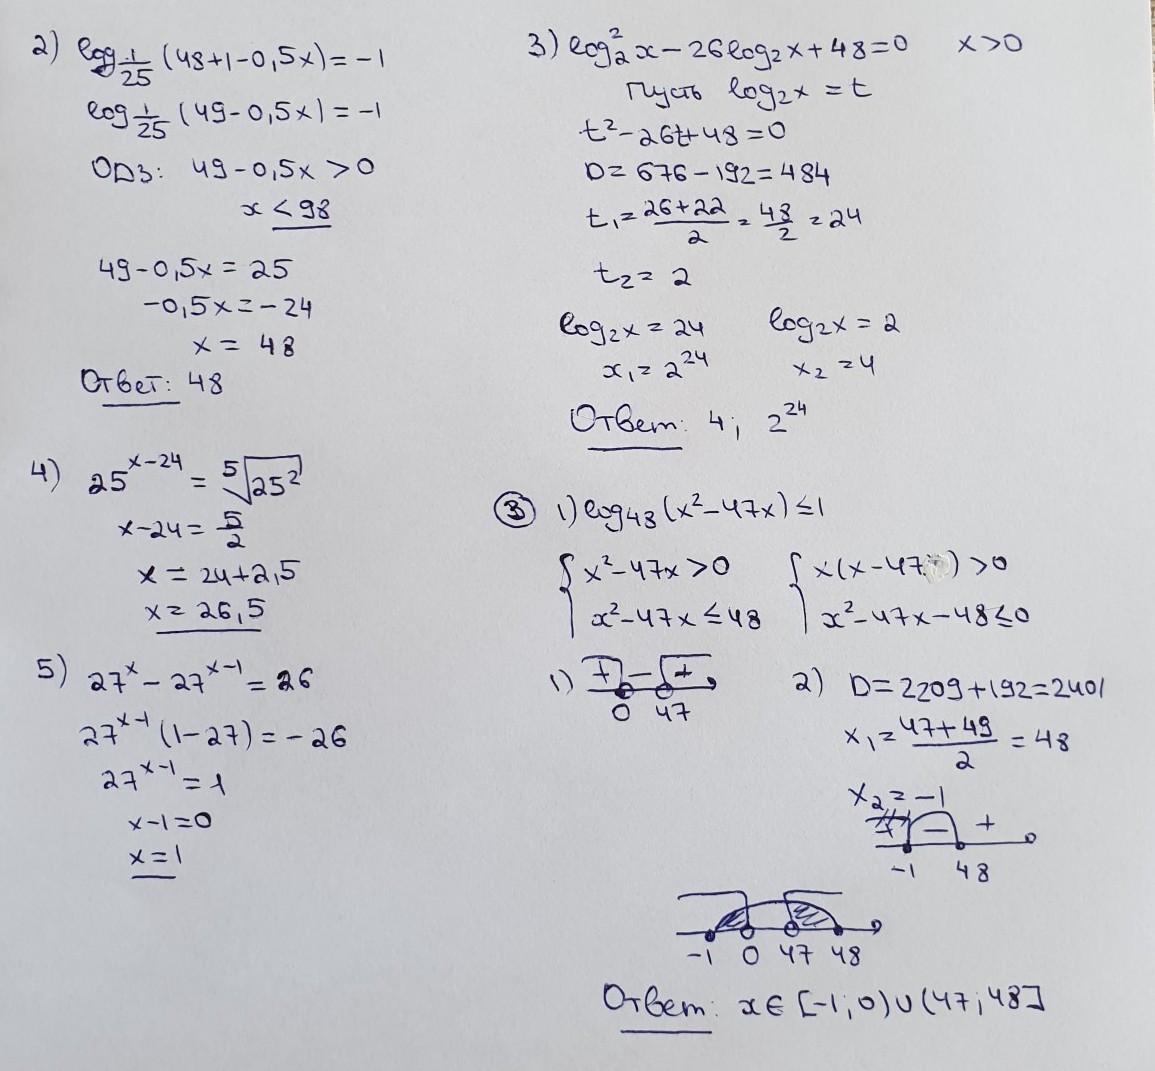 2) log_{1/25} (48+1-0,5x) = -1
log_{1/25} (49-0,5x) = -1
ОДЗ: 49-0,5x > 0
x < 98
49-0,5x = 25
-0,5x = -24
x = 48
Ответ: 48
4) 25^{x-24} = ⁵√25²
x-24 = 5/2
x = 24+2,5
x = 26,5
5) 27^x - 27^{x-1} = 26
27^{x-1} (1-27) = -26
27^{x-1} = 1
x-1=0
x=1
3) log₂²x - 26log₂x + 48 = 0 x>0
Пусть log₂x = t
t²-26t+48=0
D = 676-192 = 484
t₁ = (26+22)/2 = 48/2 = 24
t₂ = 2
log₂x = 24 log₂x = 2
x₁ = 2^{24} x₂ = 4
Ответ: 4; 2^{24}
③ 1) log₄₈(x²-47x) ≤ 1
{ x²-47x > 0 { x(x-47) > 0
x²-47x ≤ 48 x²-47x-48 ≤ 0
1) + - +
0 47
2) D = 2209+192 = 2401
x₁ = (47+49)/2 = 48
x₂ = -1
+ - +
-1 48
-1 0 47 48
Ответ: x ∈ [-1; 0) ∪ (47; 48]